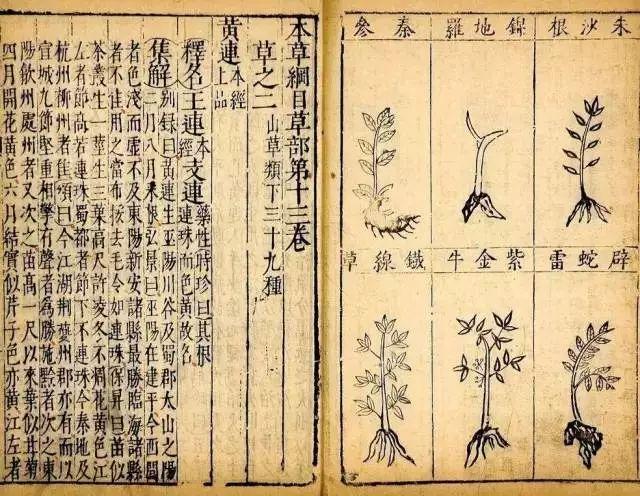 朱沙根
錦地羅
拳參
辟蛇雷
紫金牛
鐵線草
本草綱目草部第十三卷
草之二 山草類下三十九種
黃連 本經上品
釋名 王連 本經 支連 藥性 時珍曰其根連珠而色黃故名
集解 別録曰黃連生巫陽川谷及蜀郡太山之陽
二月八月采根弘景曰巫陽在建平今西間
者色淺而虛不及東陽新安諸縣最勝臨海諸縣
者不佳用之當布挼去毛令如連珠保昇曰苗似
茶叢生一莖生三葉高尺許凌冬不凋花黃色江
左者節高若連珠蜀都者節下不連珠今秦地及
杭州柳州者隹頌曰今江湖荊夔州郡亦有而以
宣城九節堅重相擊有聲者為勝施黔者次之東
陽歙州處州者又次之苗高一尺以來葉似甘菊
四月開花黃色六月結實似芹子色亦黃江左者